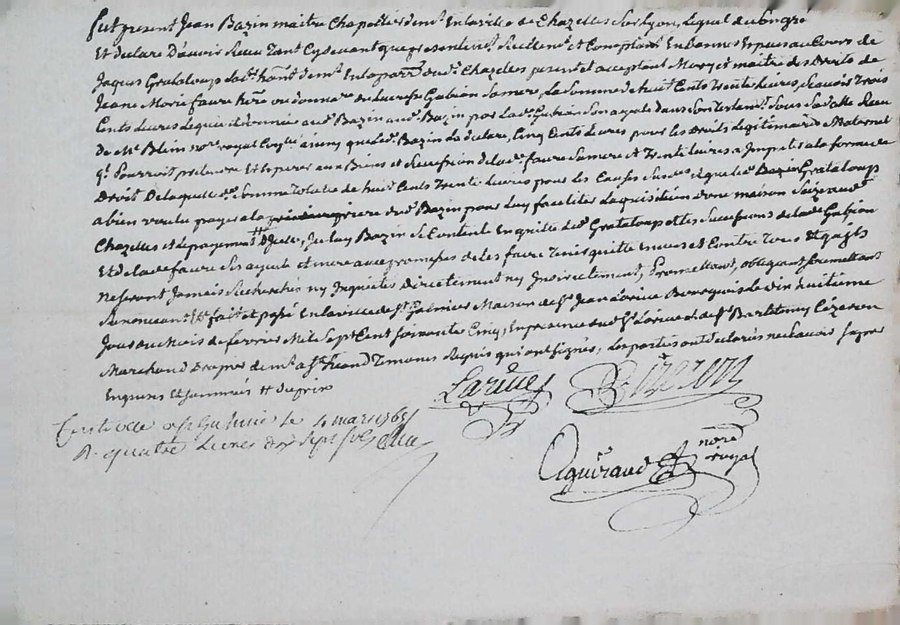 fut present Jean Bazin maitre Chapelier demt En la ville de Chazelles sur Lyon, lequel de son gré
Et declare D'avoir Receu tant Cy devant que presentemt Reellemt et Comptant En bonnes Espèces au Cours de
Jaques Grataloup habitant demt En la parre dud. Chazelles present et acceptant Mary et maitre des Droits de
Jeane Marie faure herre ou donnre de La Somme de huit Cents Trente Livres, Scavoir Trois
Cents Livres Leguées et données aud Bazin par lad. Gabion Son ayeule dans Son Testamt. Sous Sa datte Receu
de Me Blein nore royal ainsy que led. Bazin le declare, Cinq Cents Livres pour les Droits Legitimaires Maternel
qt pourroit pretendre Et Esperer aux Biens et Succession de lade. faure Sa mere et Trente Livres a la forme du
Droit De laquelle de. Somme Totalle de huit Cents Trente Livres pour les Causes Susdes. et que led. Grataloup
a bien voulu payer a la priere dud. Bazin pour luy faciliter Laquisition d'une maison Scize aud.
Chazelles et le payement d'Icelle, Iceluy Bazin Se Contente En quitte led. Grataloup et les Successions de lade. Gabion
Et de lade. faure Ses ayeule et mere avec promesse de les faire Tenir quitte Envers et Contre Tous Et qu'ils
ne seront Jamais Recherchés ny Inquietés Directement ny Indirectement, Promettant, obligeant, Soumettant
Renonceant &c fait et passé En la ville de St. Galmier Maison de Sr. Jean Bourgeois le vin huitieme
Jour du Mois de fevrier Mil Sept Cent soixante Cinq En presence dud. Sr. et de Sr. Bartelemy Cézeron
Marchand Drapier demt. a St. Temoins Requis qui ont signés, Les parties ont declarés ne Scavoir signer
Enquises Et Sommées # du prix
Larüe Cizeron
Controllé a St Galmier le 4 mars 1765
R. quatre Livres dix Sept sols
Aguiraud nore
royal